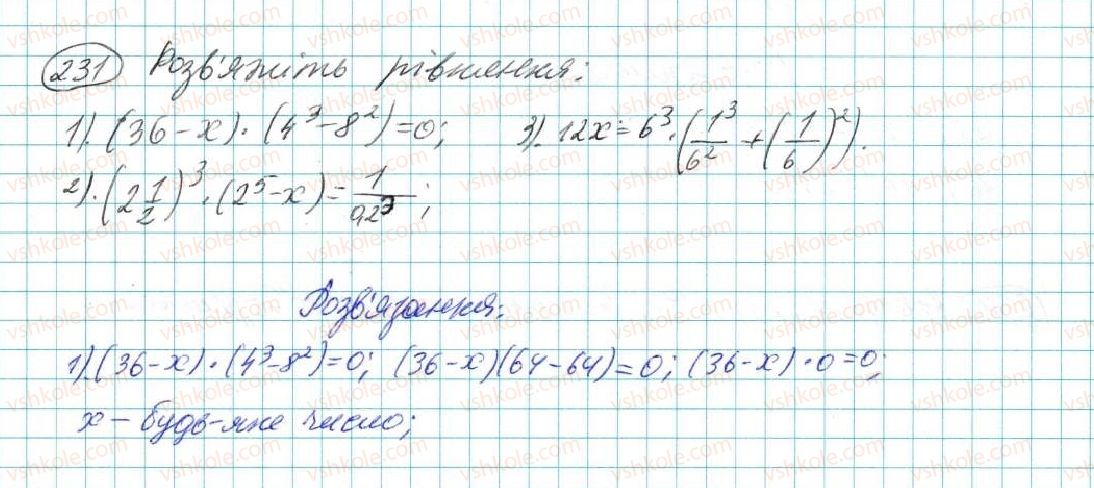 231 Розв'яжіть рівняння:
1). (36-x)·(4³-8²)=0; 3). 12x=6³·(1³/6²+(1/6)²).
2). (2 1/2)³·(2⁵-x)=1/0,2³;
Розв'язання:
1). (36-x)·(4³-8²)=0; (36-x)(64-64)=0; (36-x)·0=0;
x – будь-яке число;